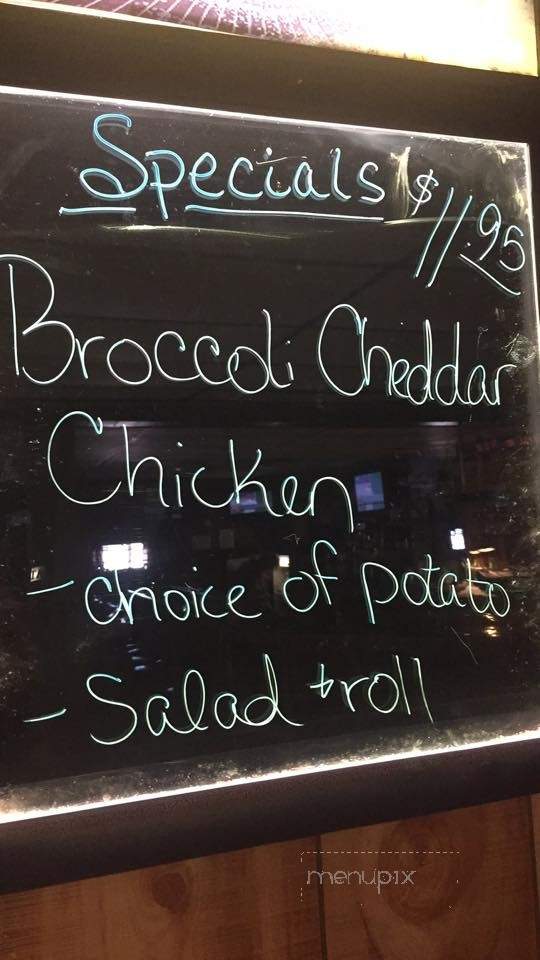 Specials $11.95
Broccoli Cheddar
Chicken
- choice of potato
- Salad + roll
menupix